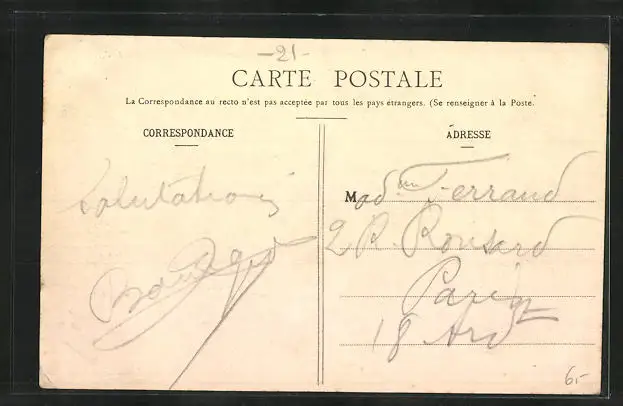 -21-
CARTE POSTALE
La Correspondance au recto n'est pas acceptée par tous les pays étrangers. (Se renseigner à la Poste.
CORRESPONDANCE
ADRESSE
Salutations
Mad me Ferrand
2 R. Ronsard
Paris
18 Ard
6.-